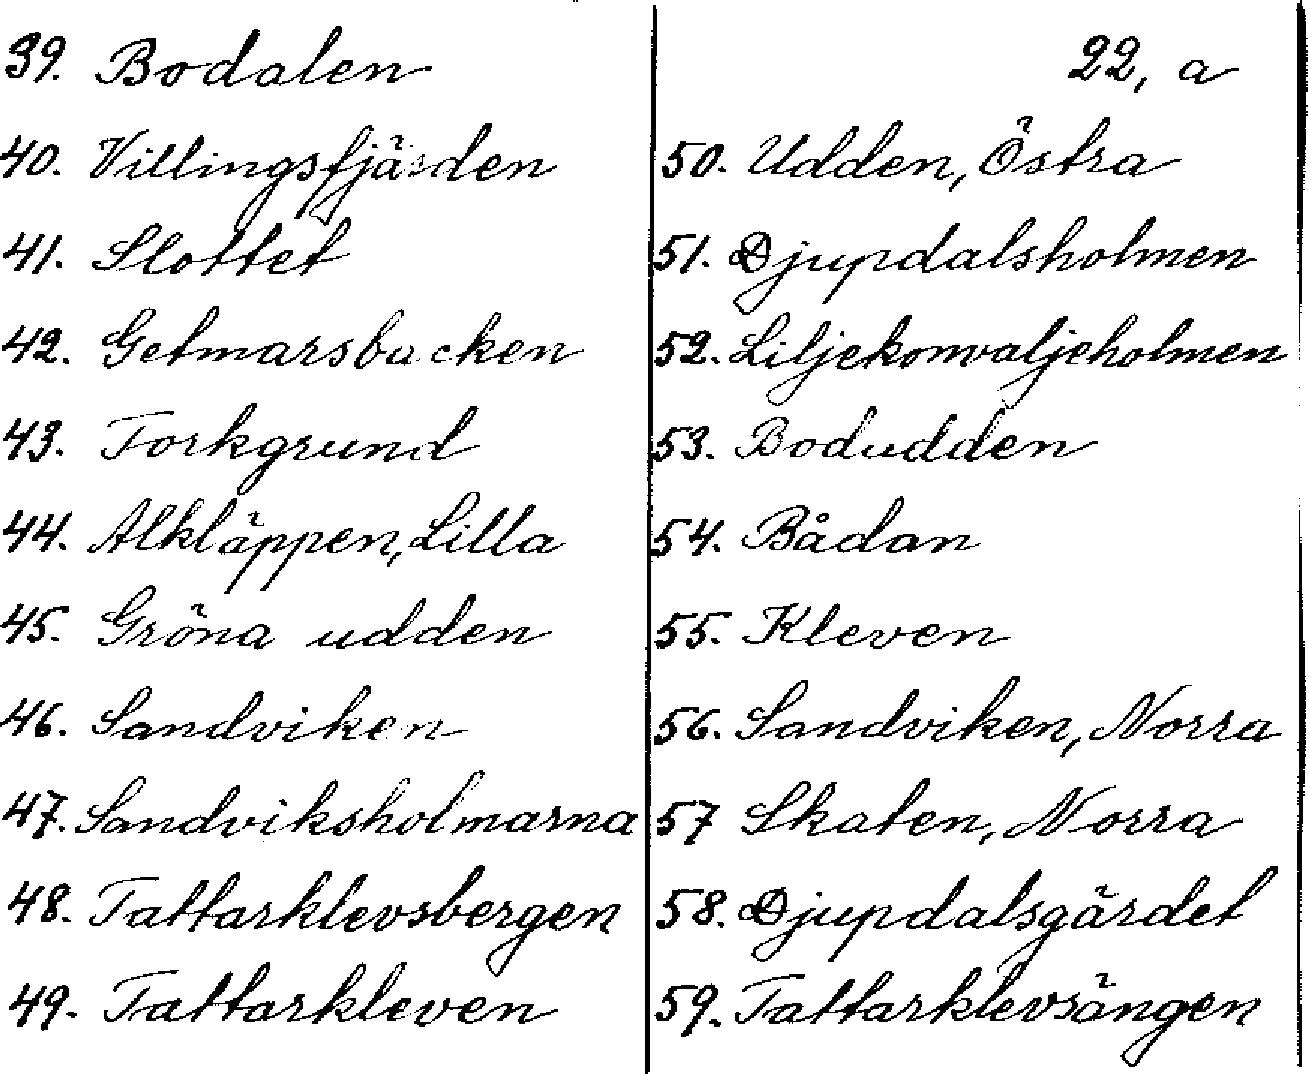 39. Bodalen
40. Villingsfjärden
41. Slottet
42. Getmarsbacken
43. Torkgrund
44. Alkläppen, Lilla
45. Gröna udden
46. Sandviken
47. Sandviksholmarna
48. Tattarklevsbergen
49. Tattarkleven
22, a
50. Udden, Östra
51. Djupdalsholmen
52. Liljekonvaljeholmen
53. Bodudden
54. Bådan
55. Kleven
56. Sandviken, Norra
57 Skaten, Norra
58. Djupdalsgärdet
59. Tattarklevsängen